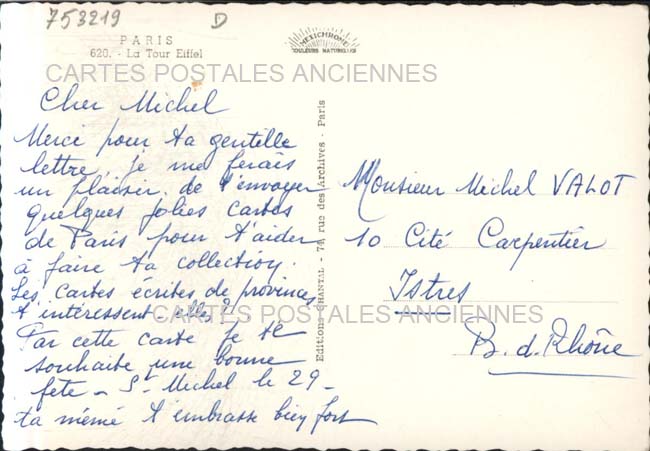 753219
D
PARIS
620. - La Tour Eiffel
MEXICHROME
COULEURS NATURELLES
CARTES POSTALES ANCIENNES
Cher Michel
Merci pour ta gentille
lettre, je me ferais
un plaisir de t'envoyer
quelques jolies cartes
de Paris pour t'aider
à faire ta collection.
Les cartes écrites de provinces
t'interessent elle?
Par cette carte je te
souhaite une bonne
fete - St Michel le 29 -
ta mémé t'embrasse bien fort
Editions CHANTAL - 74, rue des Archives - Paris
Monsieur Michel VALOT
10 Cité Carpentier
Istres
B. d. Rhône
CARTES POSTALES ANCIENNES